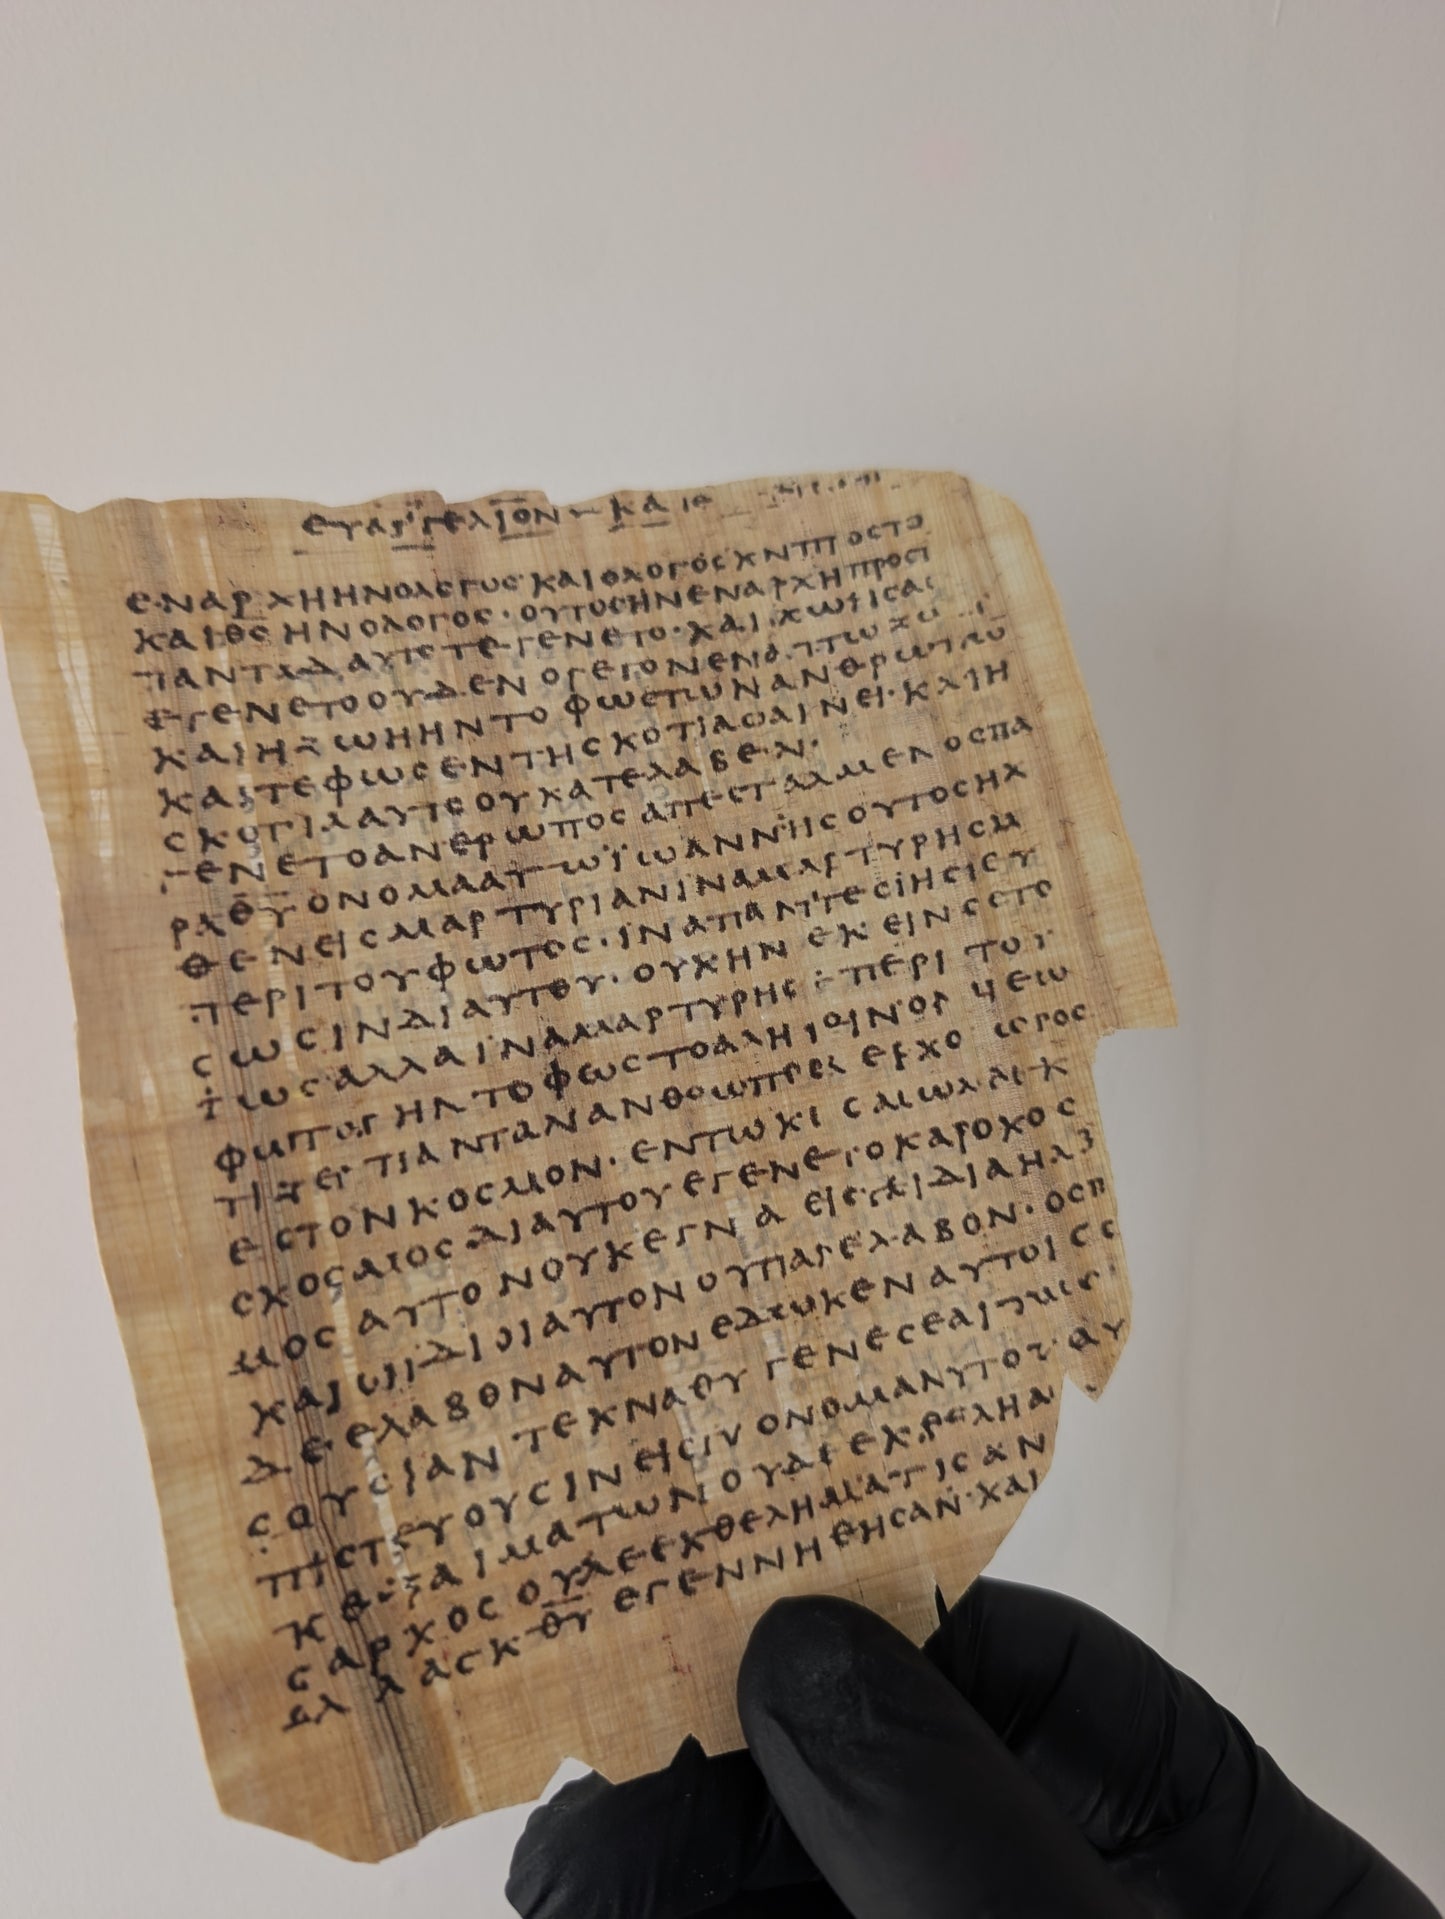 ευαγγελιον – κα ιε
ε·ναρχηηνολογυς·καιολογοςχνππροςτο
καιθςηνολογος·ουτοςηνεναρχηπροςτ
πανταδαυτετεγενετο·και·χωριςας
εγενετοουδενογεγονενεν
καιηζωηηντοφωςτωνανθρωπων
καιτεφωςεντηςκοτιαφαινει·καιη
ςκοτιλαυτεουκατελαβε·ν·
γενετοανερωποςαπεςταλμενοςπα
ραθυονομααυτωϊωαννηςουτοςηλ
θενειςμαρτυριανιναμαρτυρηςμ
περιτουφωτος·ιναπαντεςιηςιςυ
ςωςινδιαυτου·ουχηνεκεινςςτο
τωςαλλαιναμαρτυρης:περιτου
φωτοςηντοφωςτοαληιοινον
τιζειπαντανανθοωπρει ερχο
εςτονκοςμον·εντωκι
ςχοςμιοςδιαυτουεγενετοκαιοκος
μοςαυτονουκεγνα ειςταιδιαηλ
καιοιιδιοιαυτονουπαρελαβον·οςπ
δε·ελαβοναυτονεδωκεναυτοιςς
ςουςιαντεχναθυγενεςεαιτοις
πιςτευουςινειςινονομαανυτου·αυ
κ αιματωνουδεεχ
ςαρχοςουδεεχθεληματιςαν
αλλαςκθυεγεννηεηςαν·χαι